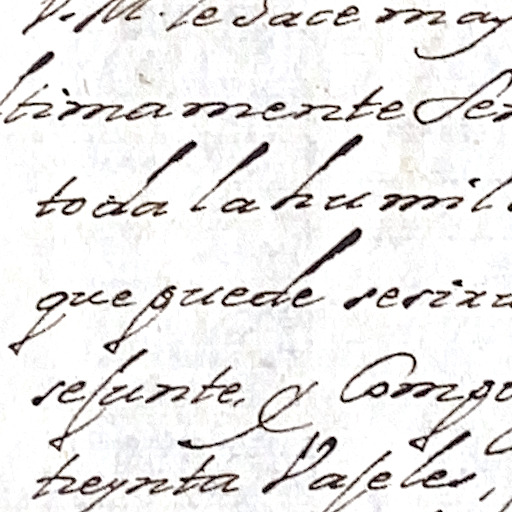 V. M. le dace may
ltimamente Ser
toda la humil
que puede sesixu
sejunte, y Compo
treynta Vaseles,